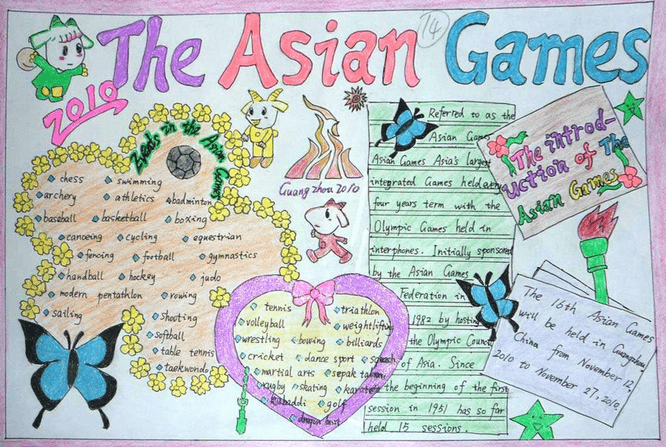 The Asian Games
14
2010
Guangzhou 2010
in the Asian Games
chess swimming
archery athletics badminton
baseball basketball boxing
canoeing cycling equestrian
fencing football gymnastics
handball hockey judo
modern pentathlon rowing
sailing shooting
softball
table tennis
taekwondo
tennis triathlon
volleyball weightlifting
wrestling bowing billiards
cricket dance sport squash
martial arts sepak takraw
rugby skating karate
kabaddi golf
dragon boat
Referred to as the
Asian Games
Asian Games Asia's largest
integrated Games held every
four years term with the
Olympic Games held in
interphones. Initially sponsored
by the Asian Games
Federation in
1982 by hosting
the Olympic Council
of Asia. Since
the beginning of the first
session in 1951 has so far
held 15 sessions.
The introd-
uction of The
Asian Games
The 16th Asian Games
will be held in Guangzhou
China from November 12,
2010 to November 27, 2010